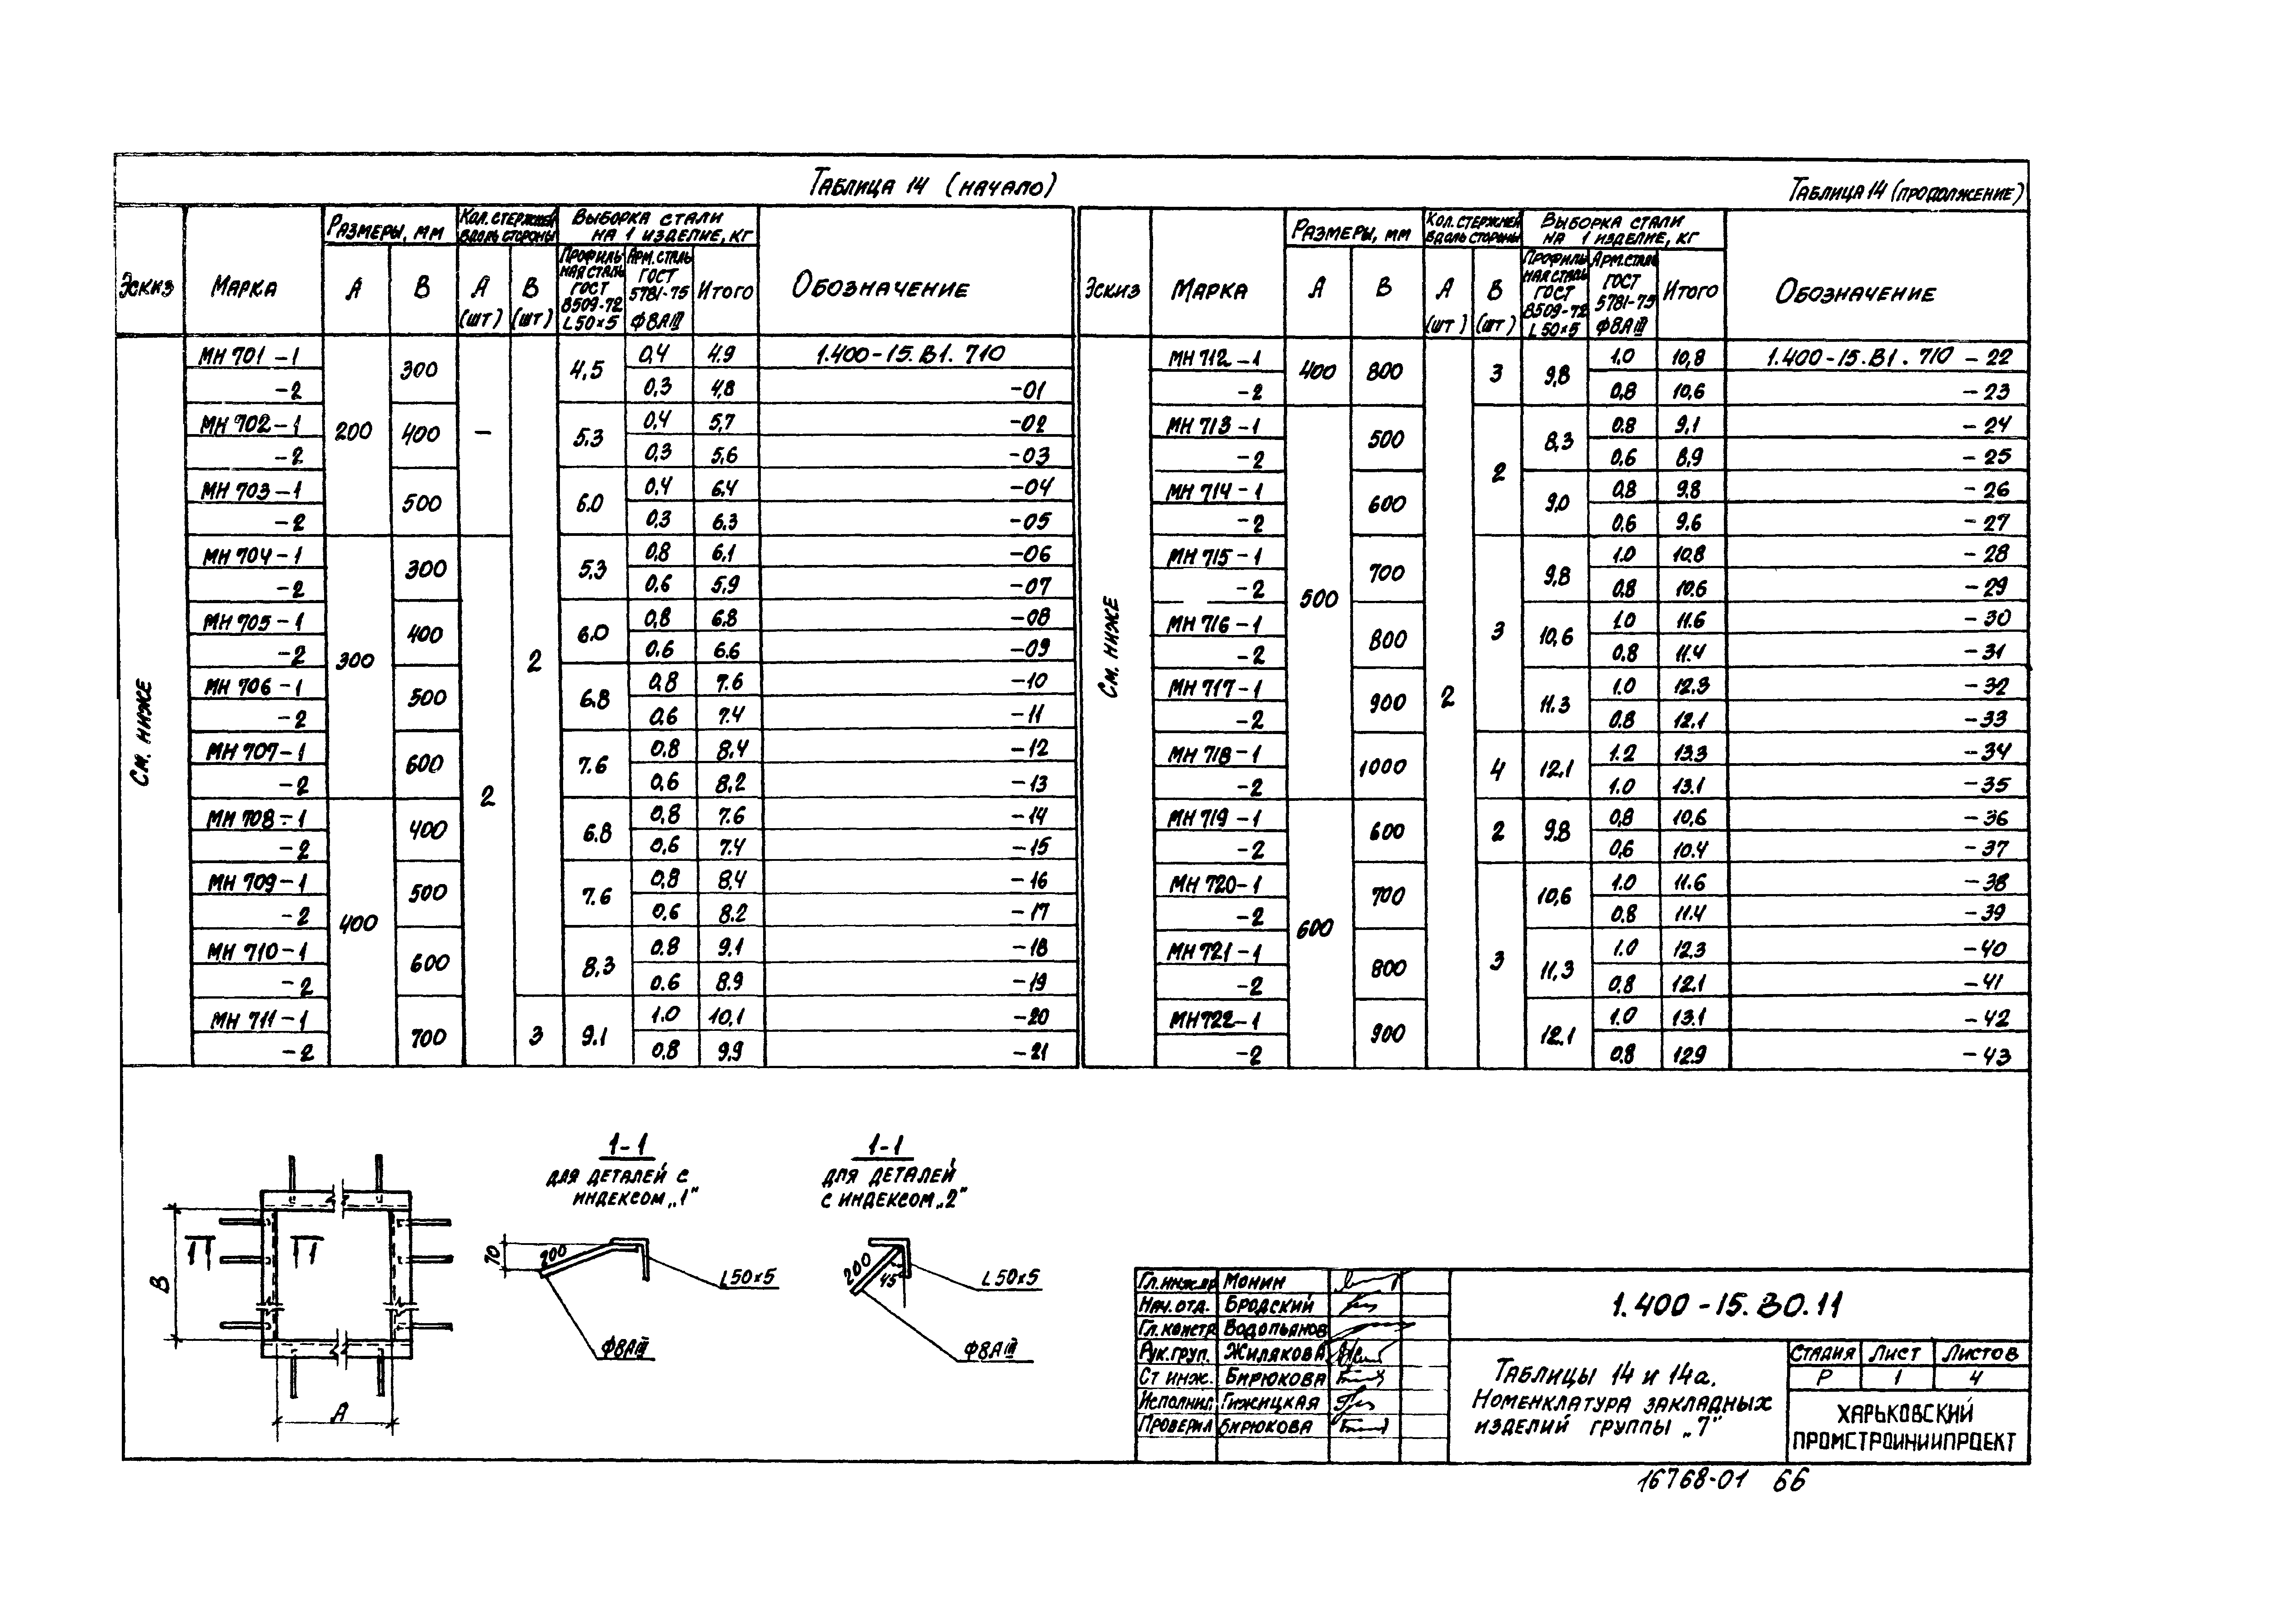 Таблица 14 (начало)
Таблица 14 (продолжение)
Эскиз
Марка
Размеры, мм
Кол. стержней вдоль стороны
Выборка стали на 1 изделие, кг
Обозначение
А
В
А (шт)
В (шт)
Профильная сталь ГОСТ 8509-72 L50×5
Арм. сталь ГОСТ 5781-75 Ф8АIII
Итого
См. ниже
МН 701-1 200 300 – 2 4,5 0,4 4.9 1.400-15.В1.710
-2 0,3 4,8 -01
МН 702-1 400 5.3 0,4 5,7 -02
-2 0,3 5.6 -03
МН 703-1 500 6.0 0.4 6.4 -04
-2 0,3 6.3 -05
МН 704-1 300 300 2 5.3 0,8 6,1 -06
-2 0,6 5,9 -07
МН 705-1 400 6.0 0,8 6.8 -08
-2 0.6 6.6 -09
МН 706-1 500 6.8 0,8 7.6 -10
-2 0,6 7.4 -11
МН 707-1 600 7.6 0,8 8,4 -12
-2 0,6 8.2 -13
МН 708-1 400 400 6.8 0,8 7.6 -14
-2 0,6 7.4 -15
МН 709-1 500 7.6 0,8 8,4 -16
-2 0,6 8.2 -17
МН 710-1 600 8,3 0.8 9.1 -18
-2 0.6 8.9 -19
МН 711-1 700 3 9.1 1.0 10,1 -20
-2 0,8 9,9 -21
Эскиз
Марка
Размеры, мм
Кол. стержней вдоль стороны
Выборка стали на 1 изделие, кг
Обозначение
А
В
А (шт)
В (шт)
Профильная сталь ГОСТ 8509-72 L50×5
Арм. сталь ГОСТ 5781-75 Ф8АIII
Итого
См. ниже
МН 712-1 400 800 2 3 9,8 1,0 10,8 1.400-15.В1.710-22
-2 0,8 10,6 -23
МН 713-1 500 500 2 8,3 0.8 9,1 -24
-2 0,6 8,9 -25
МН 714-1 600 9,0 0,8 9.8 -26
-2 0,6 9.6 -27
МН 715-1 700 3 9,8 1.0 10.8 -28
-2 0,8 10.6 -29
МН 716-1 800 10,6 1.0 11.6 -30
-2 0.8 11.4 -31
МН 717-1 900 11.3 1.0 12.3 -32
-2 0.8 12.1 -33
МН 718-1 1000 4 12,1 1.2 13.3 -34
-2 1.0 13.1 -35
МН 719-1 600 600 2 9.8 0,8 10,6 -36
-2 0,6 10.4 -37
МН 720-1 700 3 10,6 1.0 11.6 -38
-2 0.8 11.4 -39
МН 721-1 800 11,3 1.0 12.3 -40
-2 0.8 12.1 -41
МН 722-1 900 12.1 1.0 13.1 -42
-2 0.8 12.9 -43
1-1
для деталей с
индексом „1“
1-1
для деталей
с индексом „2“
1 1
В
А
70
200
L50×5
Ф8АIII
200
45°
L50×5
Ф8АIII
Гл.инж.пр Монин
Нач.отд. Бродский
Гл.констр Водопьянов
Рук.груп. Жилякова
Ст инж. Бирюкова
Исполнил Гижицкая
Проверил Бирюкова
1.400-15.В0.11
Таблицы 14 и 14а.
Номенклатура закладных
изделий группы „7“
Стадия Лист Листов
Р 1 4
Харьковский
Промстройниипроект
16768-01 66